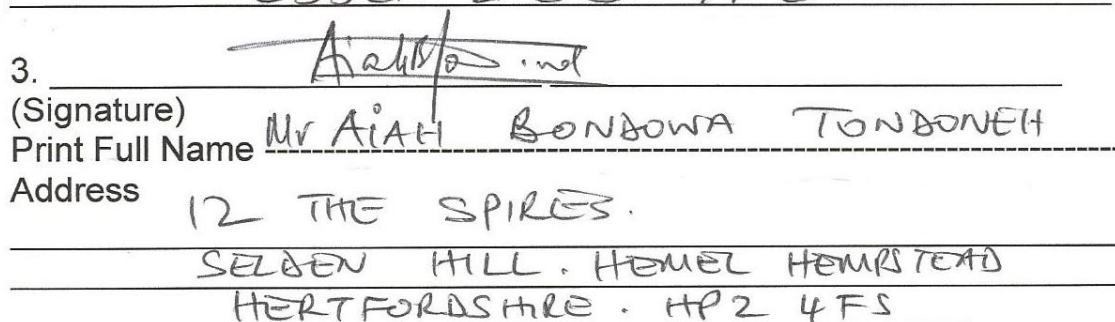 3.
(Signature)
Print Full Name Mr AiAH BONDOWA TONDONEH
Address 12 THE SPIRES.
SELDEN HILL. HEMEL HEMPSTEAD
HERTFORDSHIRE. HP2 4FS